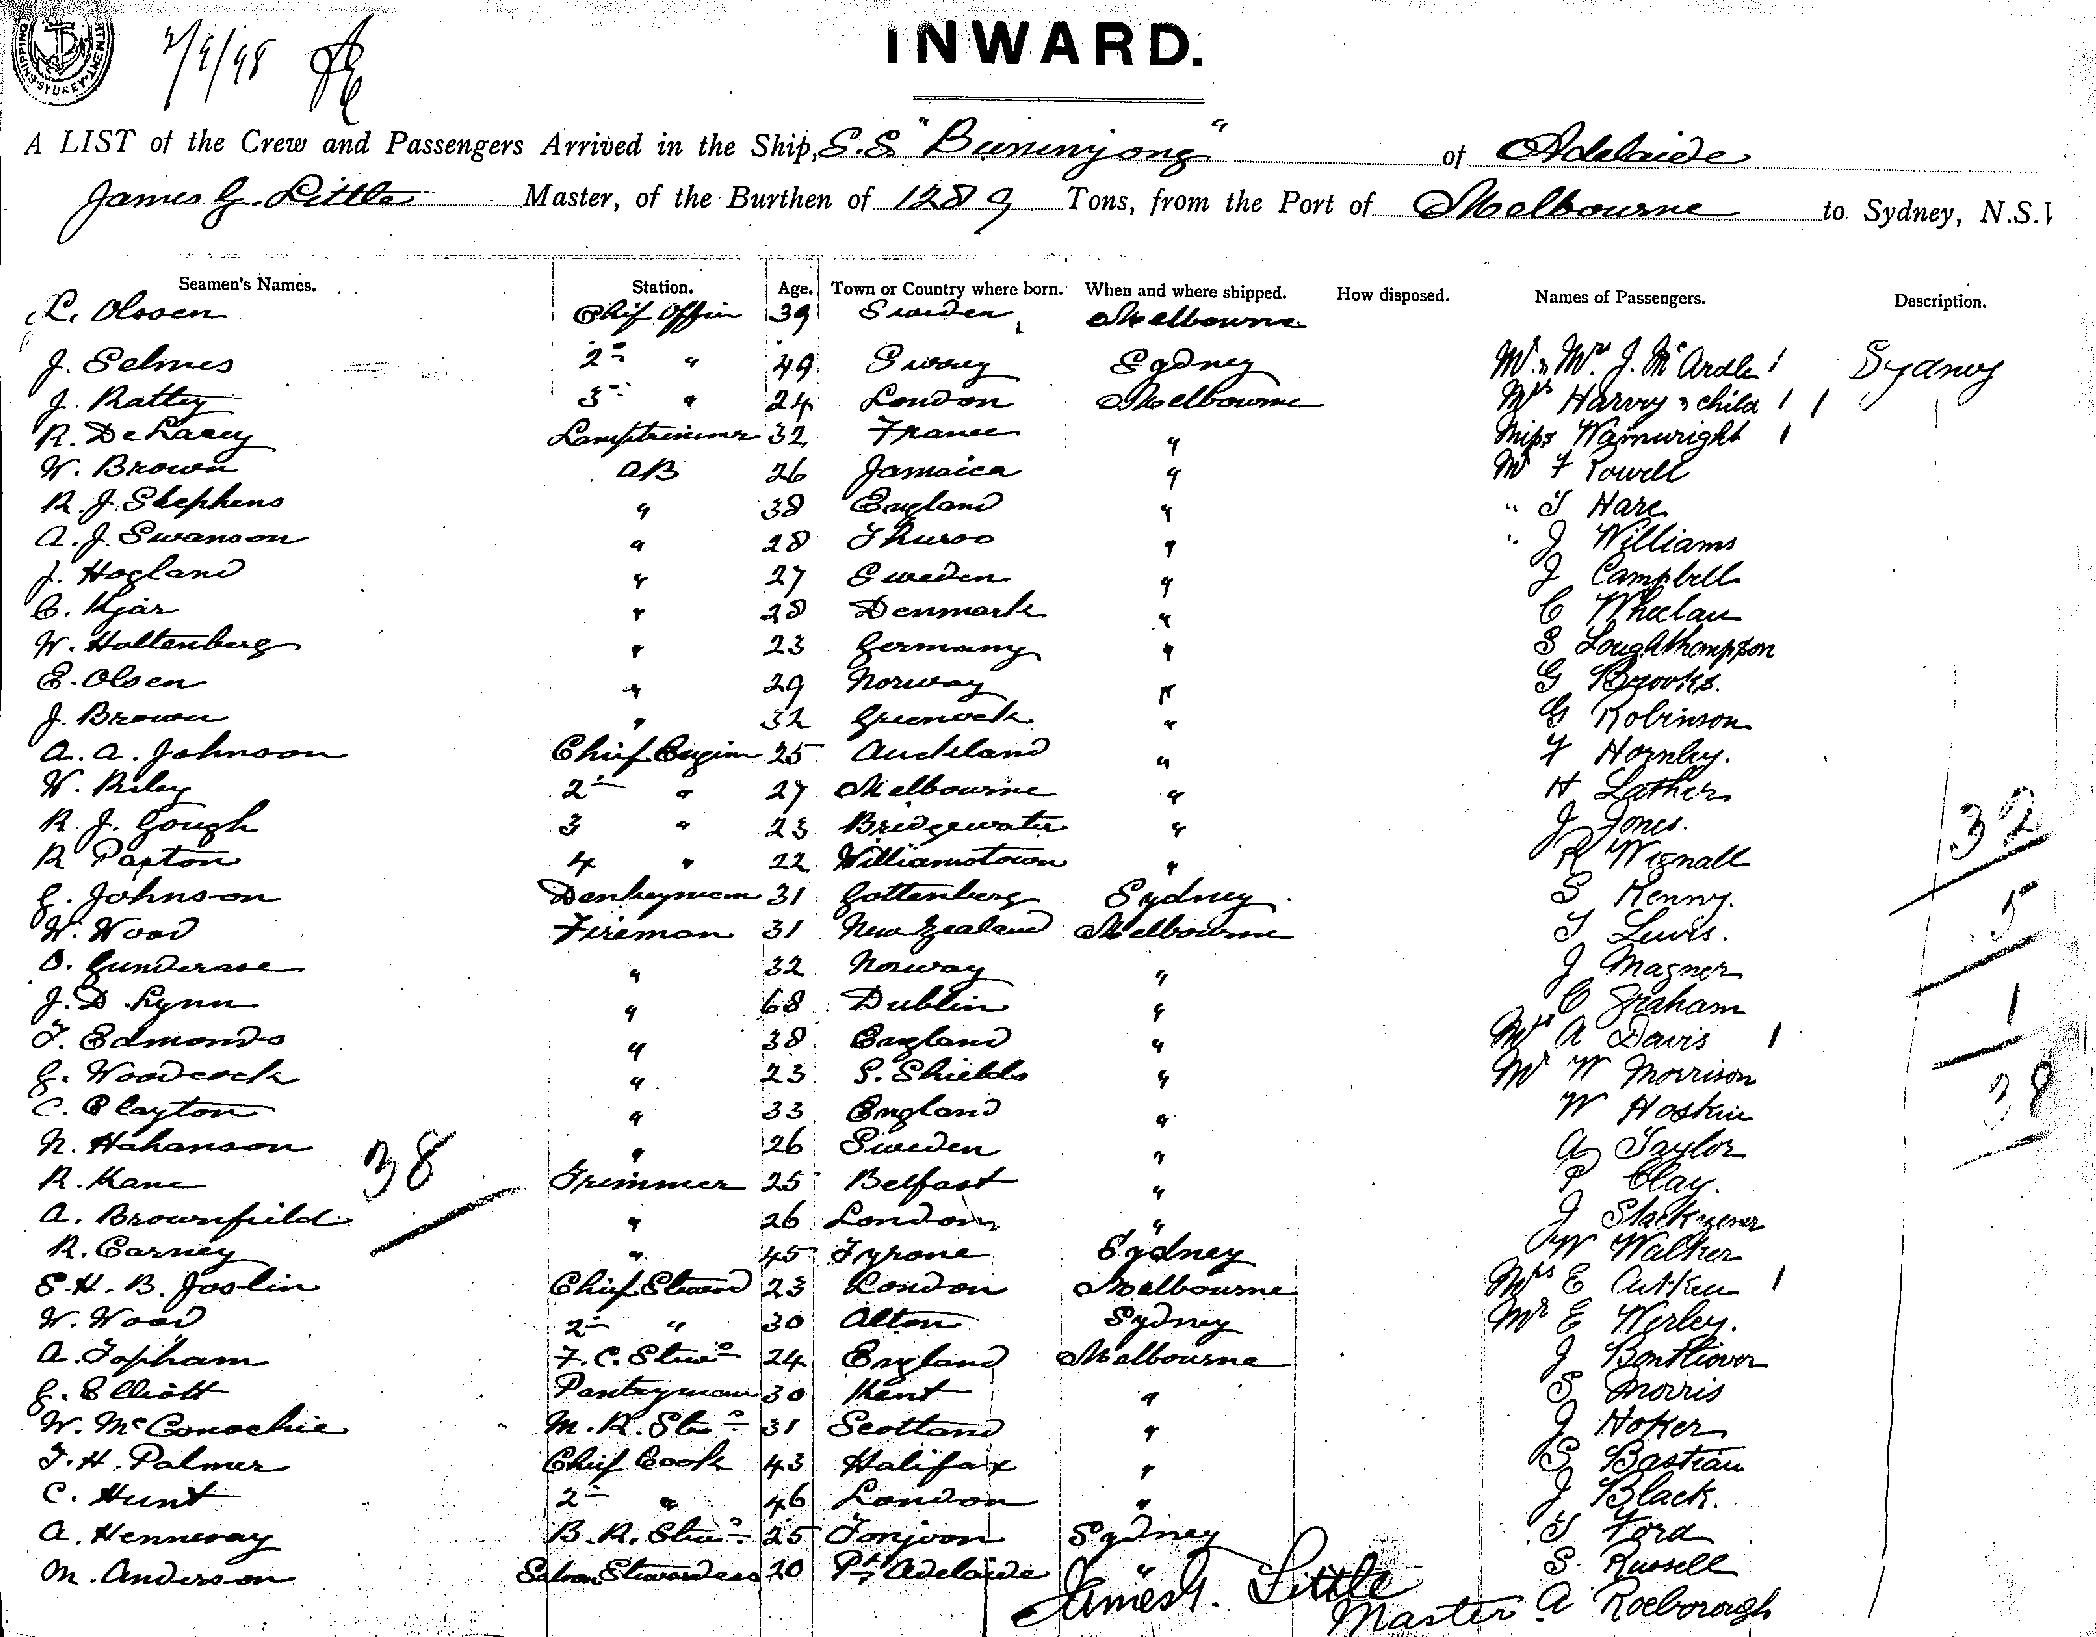 2/9/98
INWARD.
A LIST of the Crew and Passengers Arrived in the Ship, S.S. "Buninyong" of Adelaide
James G. Little Master, of the Burthen of 1289 Tons, from the Port of Melbourne to Sydney, N.S.
Seamen's Names. Station. Age. Town or Country where born. When and where shipped. How disposed. Names of Passengers. Description.
L. Olssen Chif Offier 39 Sweden Melbourne
J. Selmes 2nd " 49 Swany Sydney Mr & Mrs J. McArdle 1 Sydney
J. Rattey 3 " 24 London Melbourne Mrs Harvey & child 1 1
R. DeLacey Lamptrimmer 32 France " Miss Wainwright 1
W. Brown AB 26 Jamaica " Mr F Powell
R. J. Stephens " 38 England " " T Hare
A. J. Swanson " 28 Thurso " " J Williams
J. Hogland " 27 Sweden " J Campbell
C. Kjär " 28 Denmark " C Wheelan
W. Holtenberg " 23 Germany " S Loughthompson
E. Olsen " 29 Norway " G Brooks.
J. Brown " 32 Greenock " G Robinson
A. A. Johnson Chief Engin 25 Auckland " F Hornby.
W. Riley 2 " 27 Melbourne " H Lather
R. J. Gough 3 " 23 Bridgewater " J Jones. 32
R Paxton 4 " 22 Williamstown " R Wignall
G. Johnson Donkeyman 31 Gottenberg Sydney S Kenny.
W. Wood Fireman 31 New Zealand Melbourne T Lewis. 5
O. Gunderase " 32 Norway " J Magner
J. D. Lynn " 68 Dublin " C Graham 1
T. Edmonds " 38 England " Mrs A Davis 1
G. Woodcock " 23 S. Shields " Mr W Morrison 38
C. Clayton " 33 England " W Hoskin
N. Hakanson " 26 Sweden " A Taylor
38
R. Kane Trimmer 25 Belfast " P Clay.
A. Brownfield " 26 London " J
R. Carney " 45 Tyrone Sydney W Walker
S. H. B. Joslin Chief Steward 23 London Melbourne Mrs E Aitken 1
W. Wood 2 " 30 Alton Sydney Mr E Werley.
A. Topham F. C. Stewd 24 England Melbourne J
G. Elliott Pantryman 30 Kent " S Morris
W. McConochie M. R. Stwd 31 Scotland " J Hoker
T. H. Palmer Chief Cook 43 Halifax " S Bastian
C. Hunt 2 " 46 London " J Black.
A. Henneray B. R. Stwd 25 Sydney T Ford
M. Anderson Saloon Stewardess 20 Pt Adelaide " S. Russell
James G. Little
Master A Roeborough